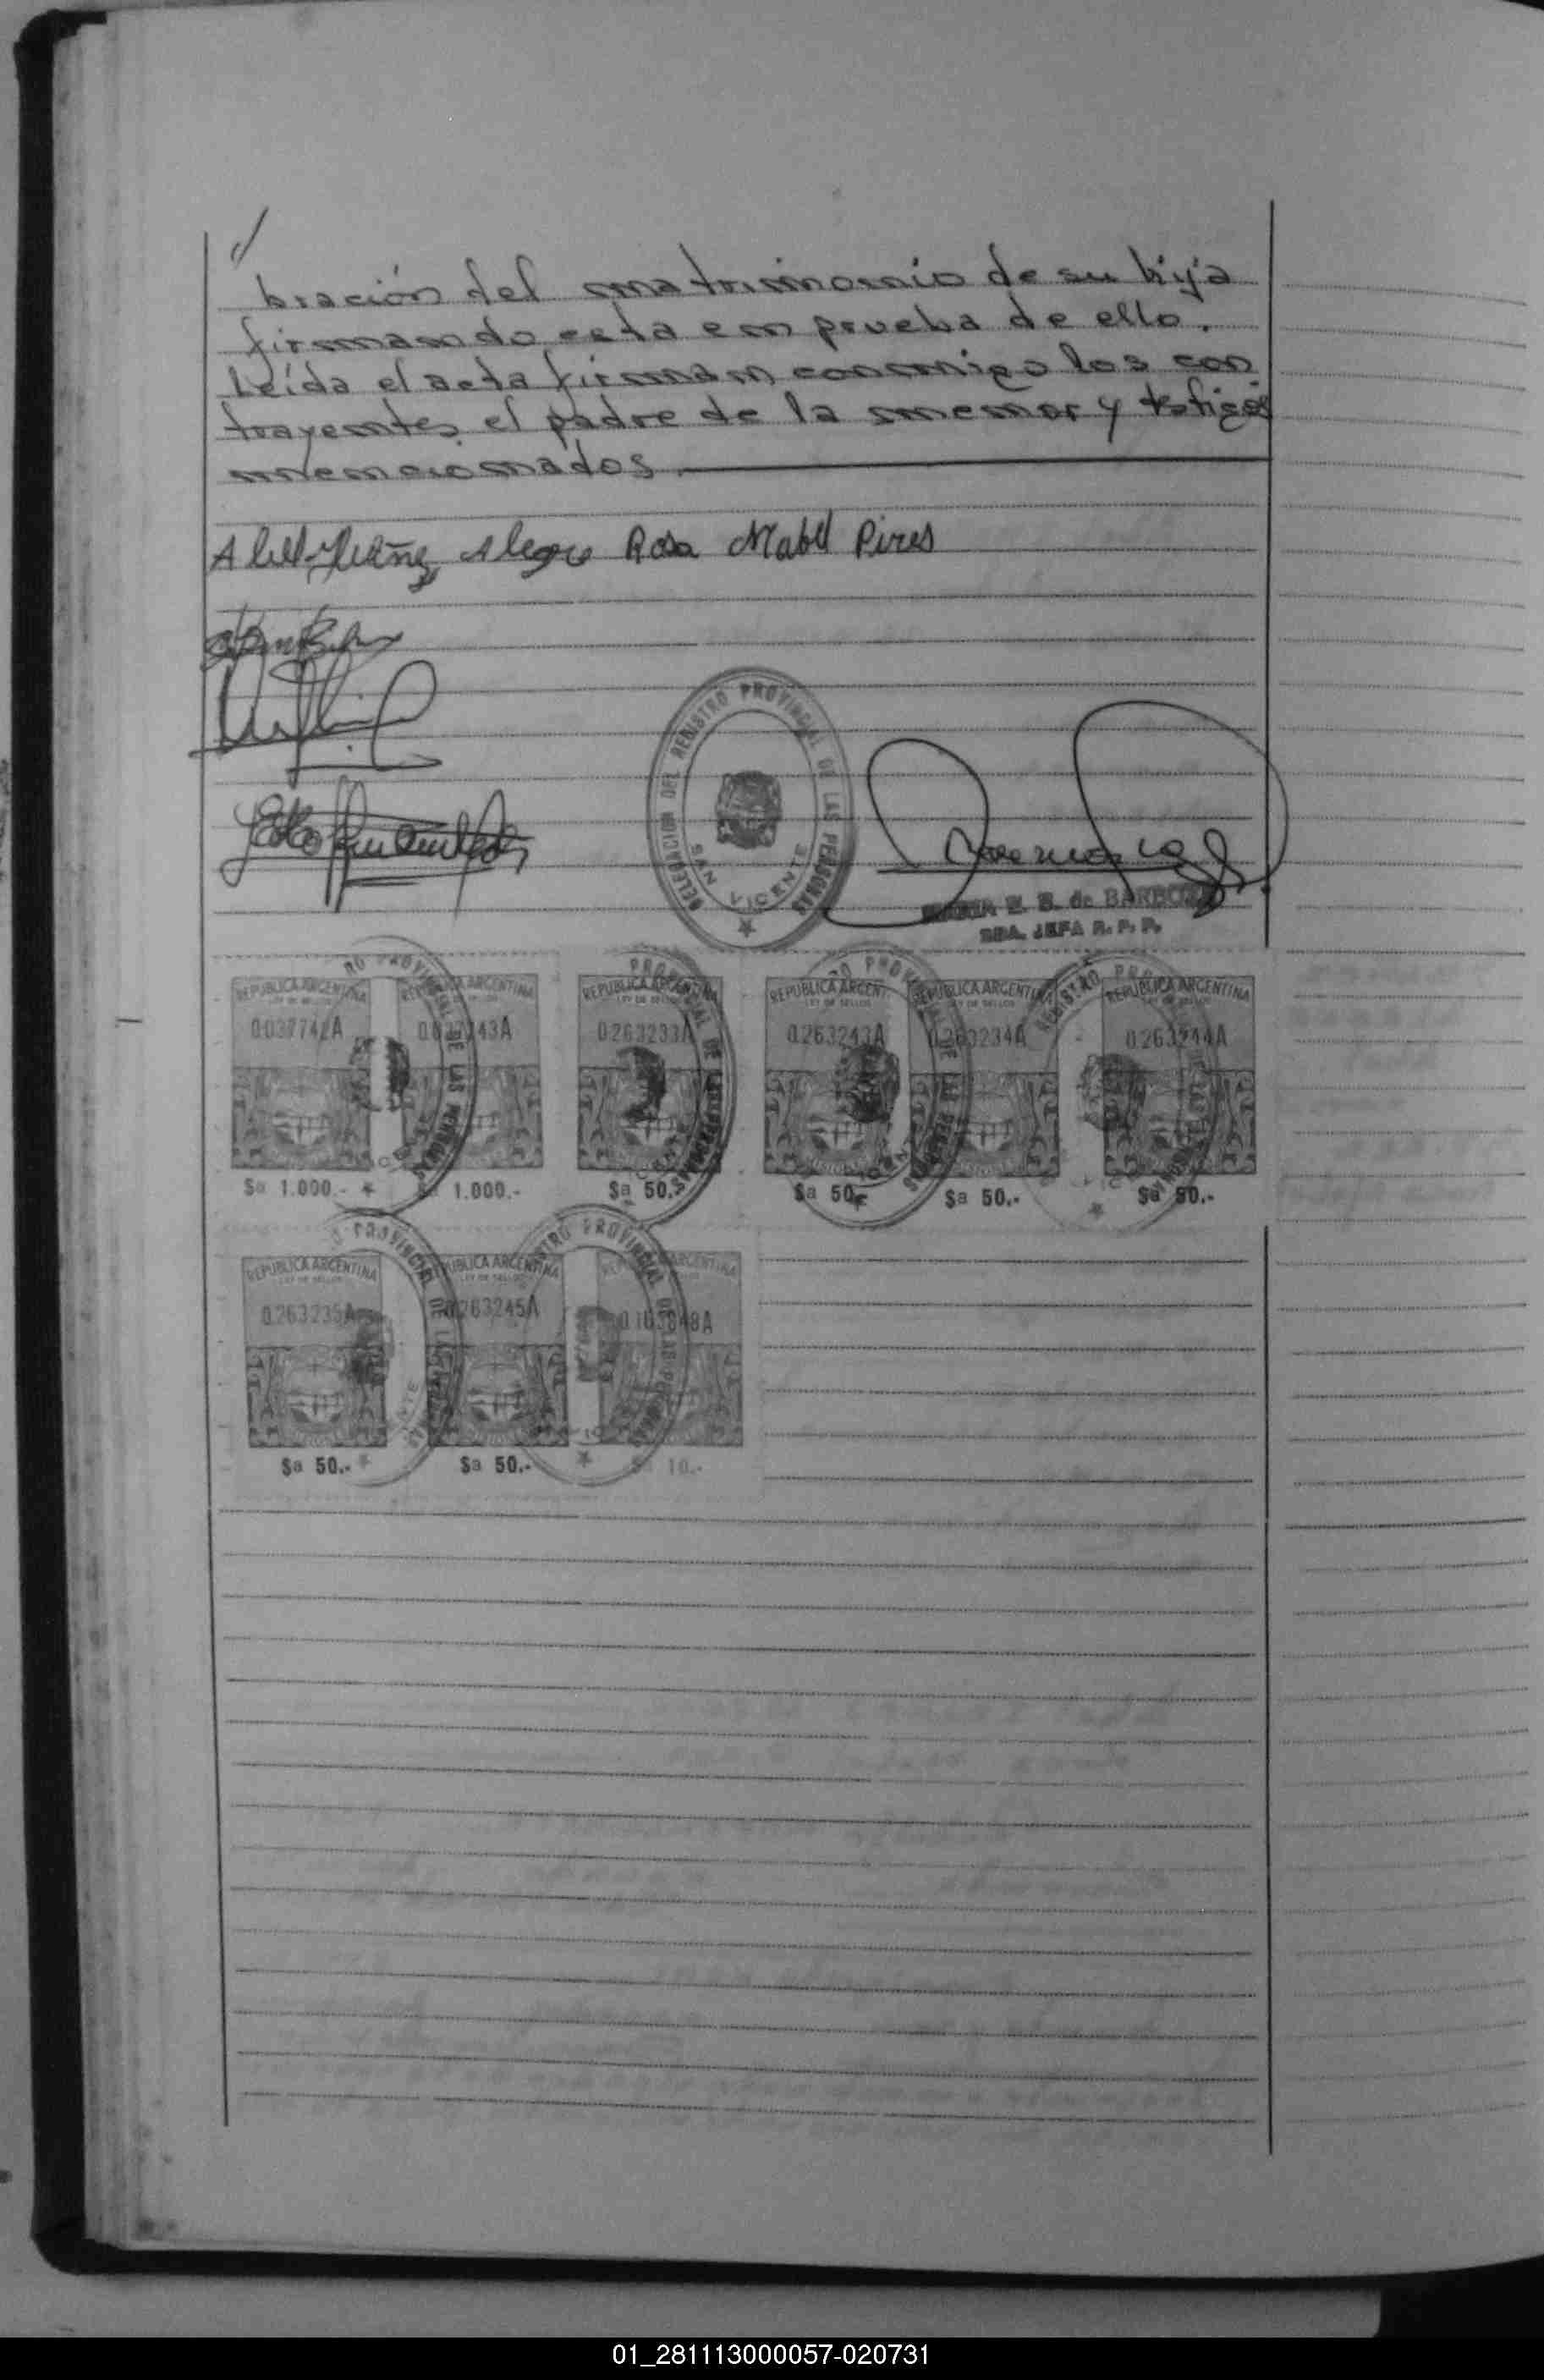 bración del matrimonio de su hija
firmando esta en prueba de ello.
Leída el acta firman conmigo los con
trayentes, el padre de la menor y testigos
mencionados.
Alegre Rosa Mabel Pires
DELEGACION DEL REGISTRO PROVINCIAL DE LAS PERSONAS
SAN VICENTE
MARIA E. B. de BARBOZA
SDA. JEFA R. P. P.
REPUBLICA ARGENTINA REPUBLICA ARGENTINA REPUBLICA ARGENTINA REPUBLICA ARGENTINA REPUBLICA ARGENTINA REPUBLICA ARGENTINA
LEY DE SELLOS LEY DE SELLOS LEY DE SELLOS LEY DE SELLOS LEY DE SELLOS
0.037742A 0.037743A 0.263233A 0.263243A 0.263234A 0.263244A
$a 1.000.- $a 1.000.- $a 50.- $a 50.- $a 50.- $a 50.-
REPUBLICA ARGENTINA REPUBLICA ARGENTINA REPUBLICA ARGENTINA
LEY DE SELLOS LEY DE SELLOS
0.263235A 0.263245A
$a 50.- $a 50.- $a 10.-
01_281113000057-020731